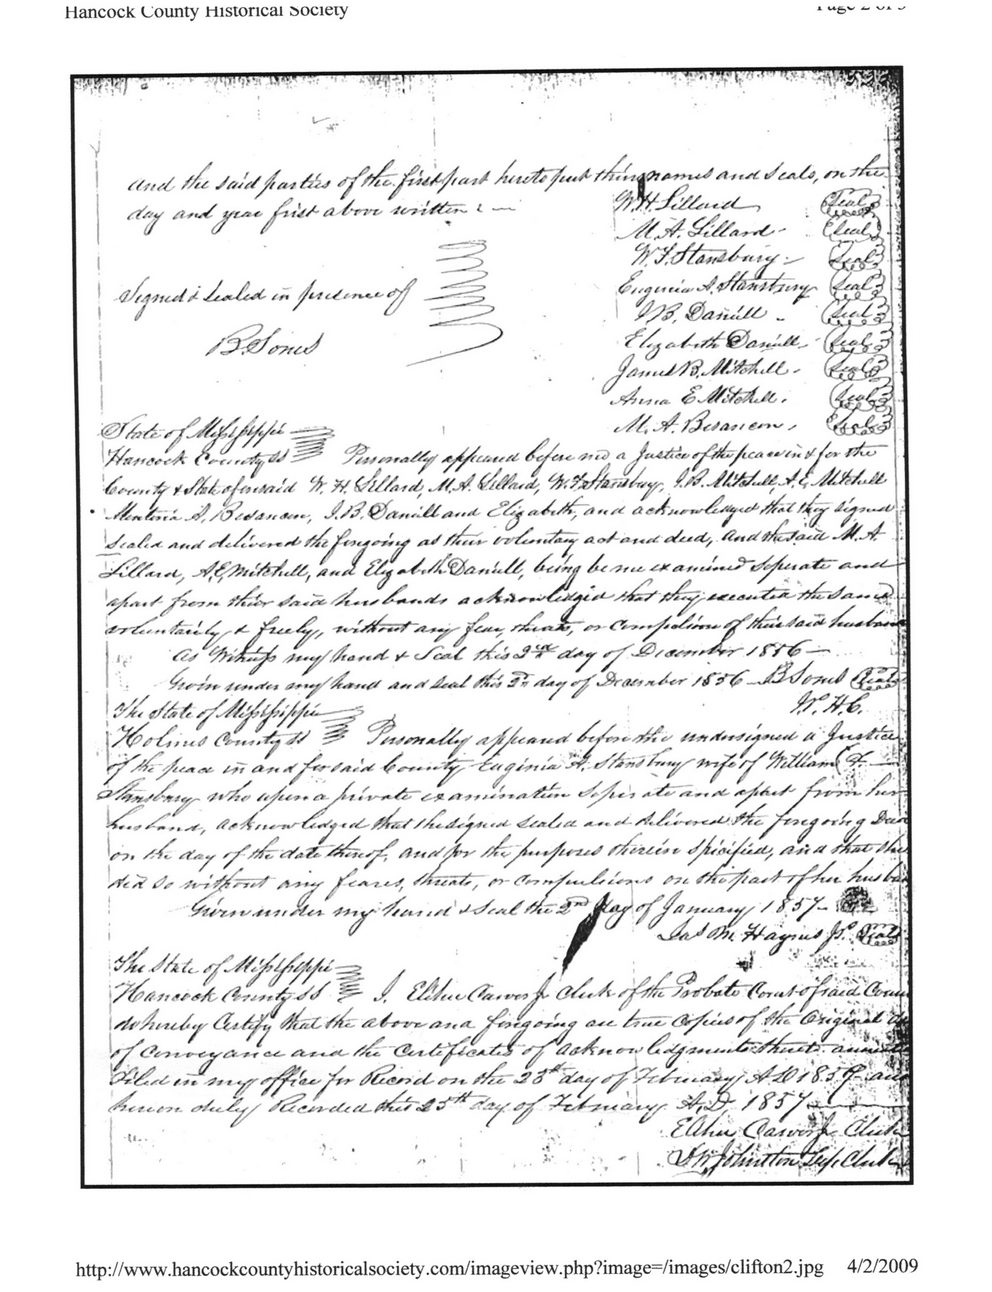 Hancock County Historical Society
Page 2 of 3
and the said parties of the first part hereto put their names and seals, on the
day and year first above written
W. H. Lillard (Seal)
M. A. Lillard (Seal)
W. F. Stansbury (Seal)
Eugenia A. Stansbury (Seal)
Signed & sealed in presence of
J. B. Daniell (Seal)
B. Sones
Elizabeth Daniell (Seal)
James B. Mitchell (Seal)
Anna E Mitchell (Seal)
M. A. Besancon (Seal)
State of Mississippi
Hancock County ss Personally appeared before me a Justice of the peace in & for the
County & State aforesaid W. H. Lillard, M. A. Lillard, W. F. Stansbury, J. B. Mitchell A. E. Mitchell
A. Besancon, J. B. Daniell and Elizabeth, and acknowledged that they signed
sealed and delivered the foregoing as their voluntary act and deed, and the said M. A
Lillard, A. E. Mitchell, and Elizabeth Daniell, being be me examined seperate and
apart from their said husbands acknowledged that they executed the same
voluntarily & freely, without any fear, threats, or compulsion of their said husband
As witness my hand & Seal this 2nd day of December 1856
Given under my hand and seal this 2nd day of December 1856 B Sones (Seal)
The State of Mississippi
Holmes County ss Personally appeared before the undersigned a Justice
of the peace in and for said County Euginia A. Stansbury wife of William F.
Stansbury who upon a private examination seperate and apart from her
husband, acknowledged that she signed sealed and delivered the foregoing Deed
on the day of the date thereof, and for the purposes therein specified, and that she
did so without any feares, threats, or compulsions on the part of her husban
Given under my hand & seal the 2nd day of January 1857
Jas M. Haynes J.P. (Seal)
The State of Mississippi
Hancock County SS I, Elihu Carver Jr Clerk of the Probate Court of said Coun
do hereby Certify that the above and foregoing are true copies of the original
of conveyance and the certificates of acknowledgments thereto
filed in my office for Record on the 23rd day of February A.D 1857 and
hereon duly Recorded this 25th day of February A.D. 1857
Elihu Carver Jr Clerk
Johnston Clerk
http://www.hancockcountyhistoricalsociety.com/imageview.php?image=/images/clifton2.jpg 4/2/2009